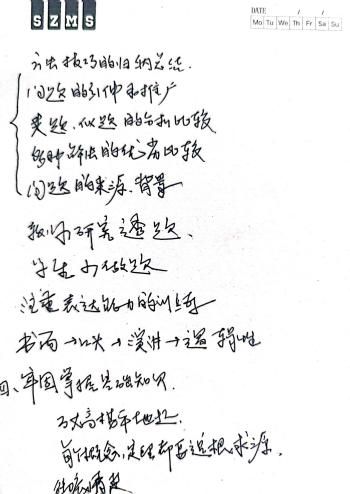 SZMS
DATE / /
Mo Tu We Th Fr Sa Su
方法技巧的归纳总结.
问题的引伸和推广
类题、似题的分析比较
多种解法的优劣比较
问题的来源、背景
教师研究透题、
学生少做题
注重表达能力的训练
书面→口头→演讲→逻辑性
四、牢固掌握基础知识.
万丈高楼平地起.
每个概念,定理都要追根求源.